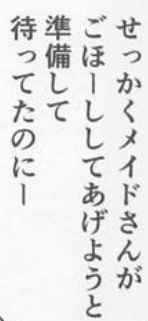 せっかくメイドさんが
ごほーししてあげようと
準備して
待ってたのにー